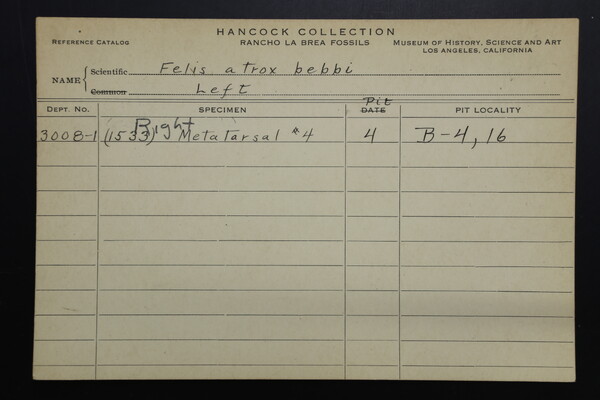 HANCOCK COLLECTION
REFERENCE CATALOG RANCHO LA BREA FOSSILS MUSEUM OF HISTORY, SCIENCE AND ART
LOS ANGELES, CALIFORNIA
NAME { Scientific Felis atrox bebbi
Common Left
Pit
DEPT. NO. SPECIMEN DATE PIT LOCALITY
Right
3008-1 (1533) Metatarsal #4 4 B-4, 16